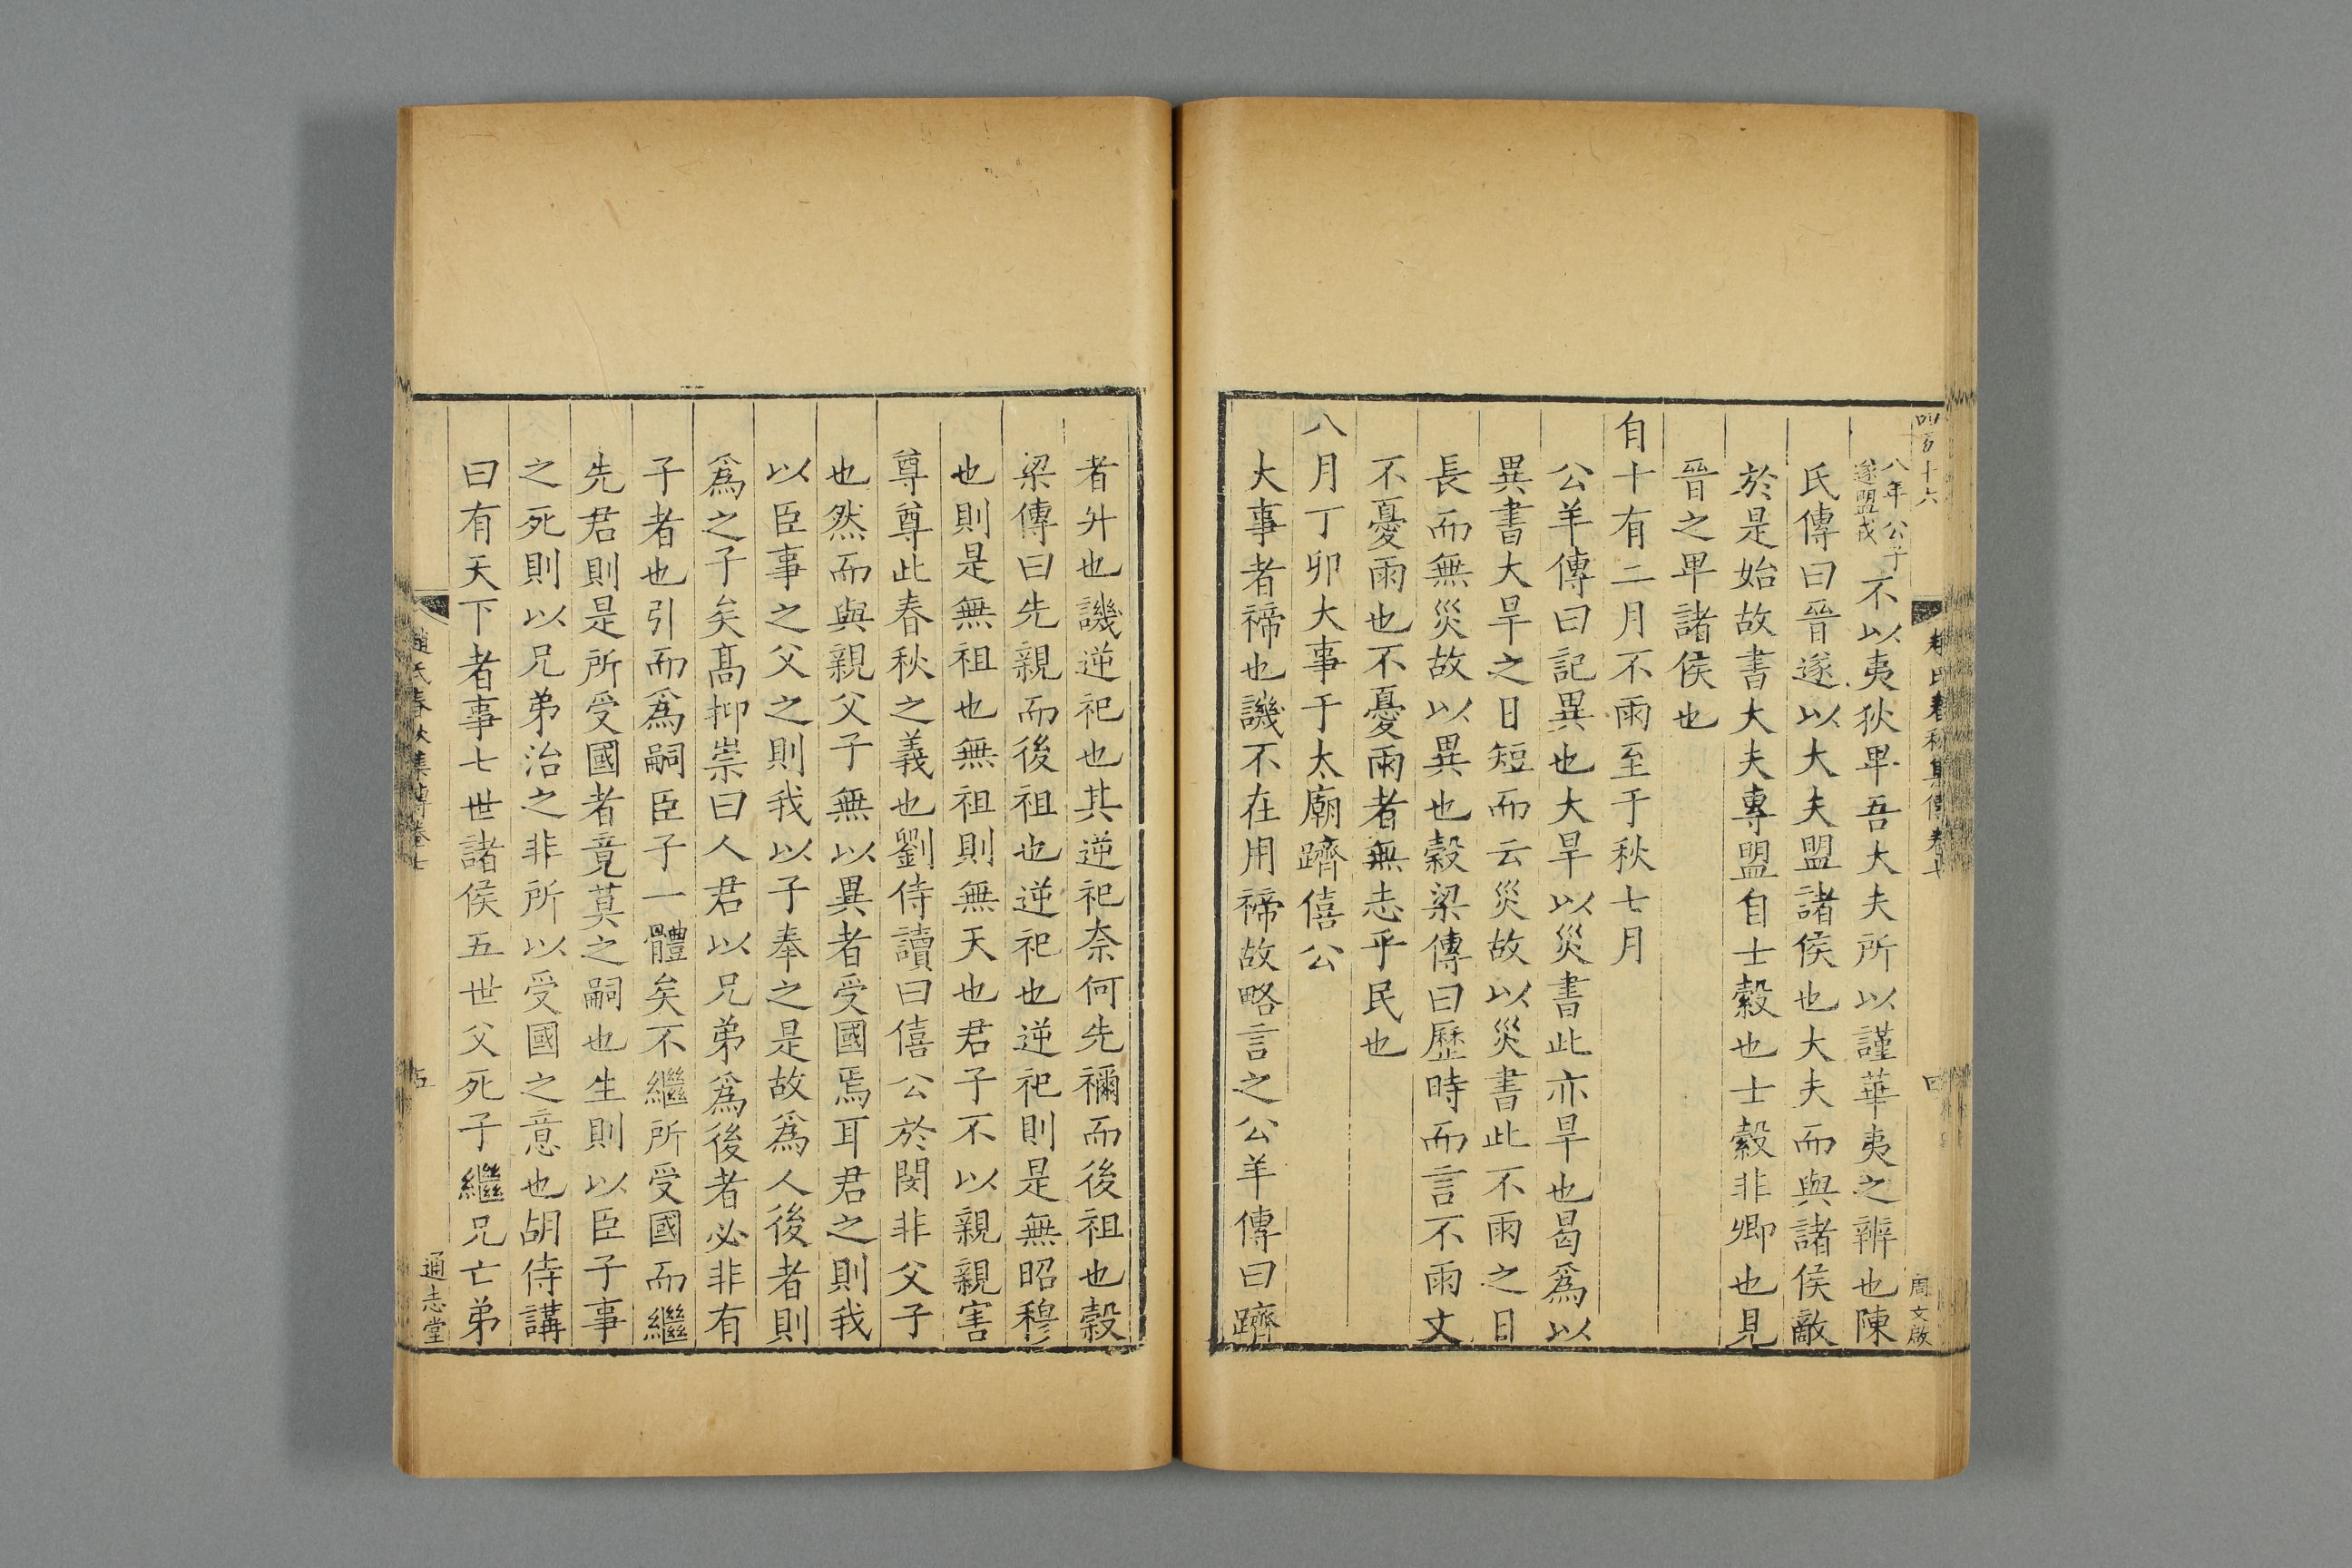 四百十六
趙氏春秋集傳卷七
四
周文啟
八年公子
遂盟戎
不以夷狄卑吾大夫所以謹華夷之辨也陳
氏傳曰晉遂以大夫盟諸侯也大夫而與諸侯敵
於是始故書大夫專盟自士縠也士縠非卿也見
晉之卑諸侯也
自十有二月不雨至于秋七月
公羊傳曰記異也大旱以災書此亦旱也曷爲以
異書大旱之日短而云災故以災書此不雨之日
長而無災故以異也穀梁傳曰歷時而言不雨文
不憂雨也不憂雨者無志乎民也
八月丁卯大事于太廟躋僖公
大事者禘也譏不在用禘故略言之公羊傳曰躋
者升也譏逆祀也其逆祀奈何先禰而後祖也穀
梁傳曰先親而後祖也逆祀也逆祀則是無昭穆
也則是無祖也無祖則無天也君子不以親親害
尊尊此春秋之義也劉侍讀曰僖公於閔非父子
也然而與親父子無以異者受國焉耳君之則我
以臣事之父之則我以子奉之是故爲人後者則
爲之子矣髙抑崇曰人君以兄弟爲後者必非有
子者也引而爲嗣臣子一體矣不繼所受國而繼
先君則是所受國者竟莫之嗣也生則以臣子事
之死則以兄弟治之非所以受國之意也胡侍講
曰有天下者事七世諸侯五世父死子繼兄亡弟
趙氏春秋集傳卷七
五
通志堂